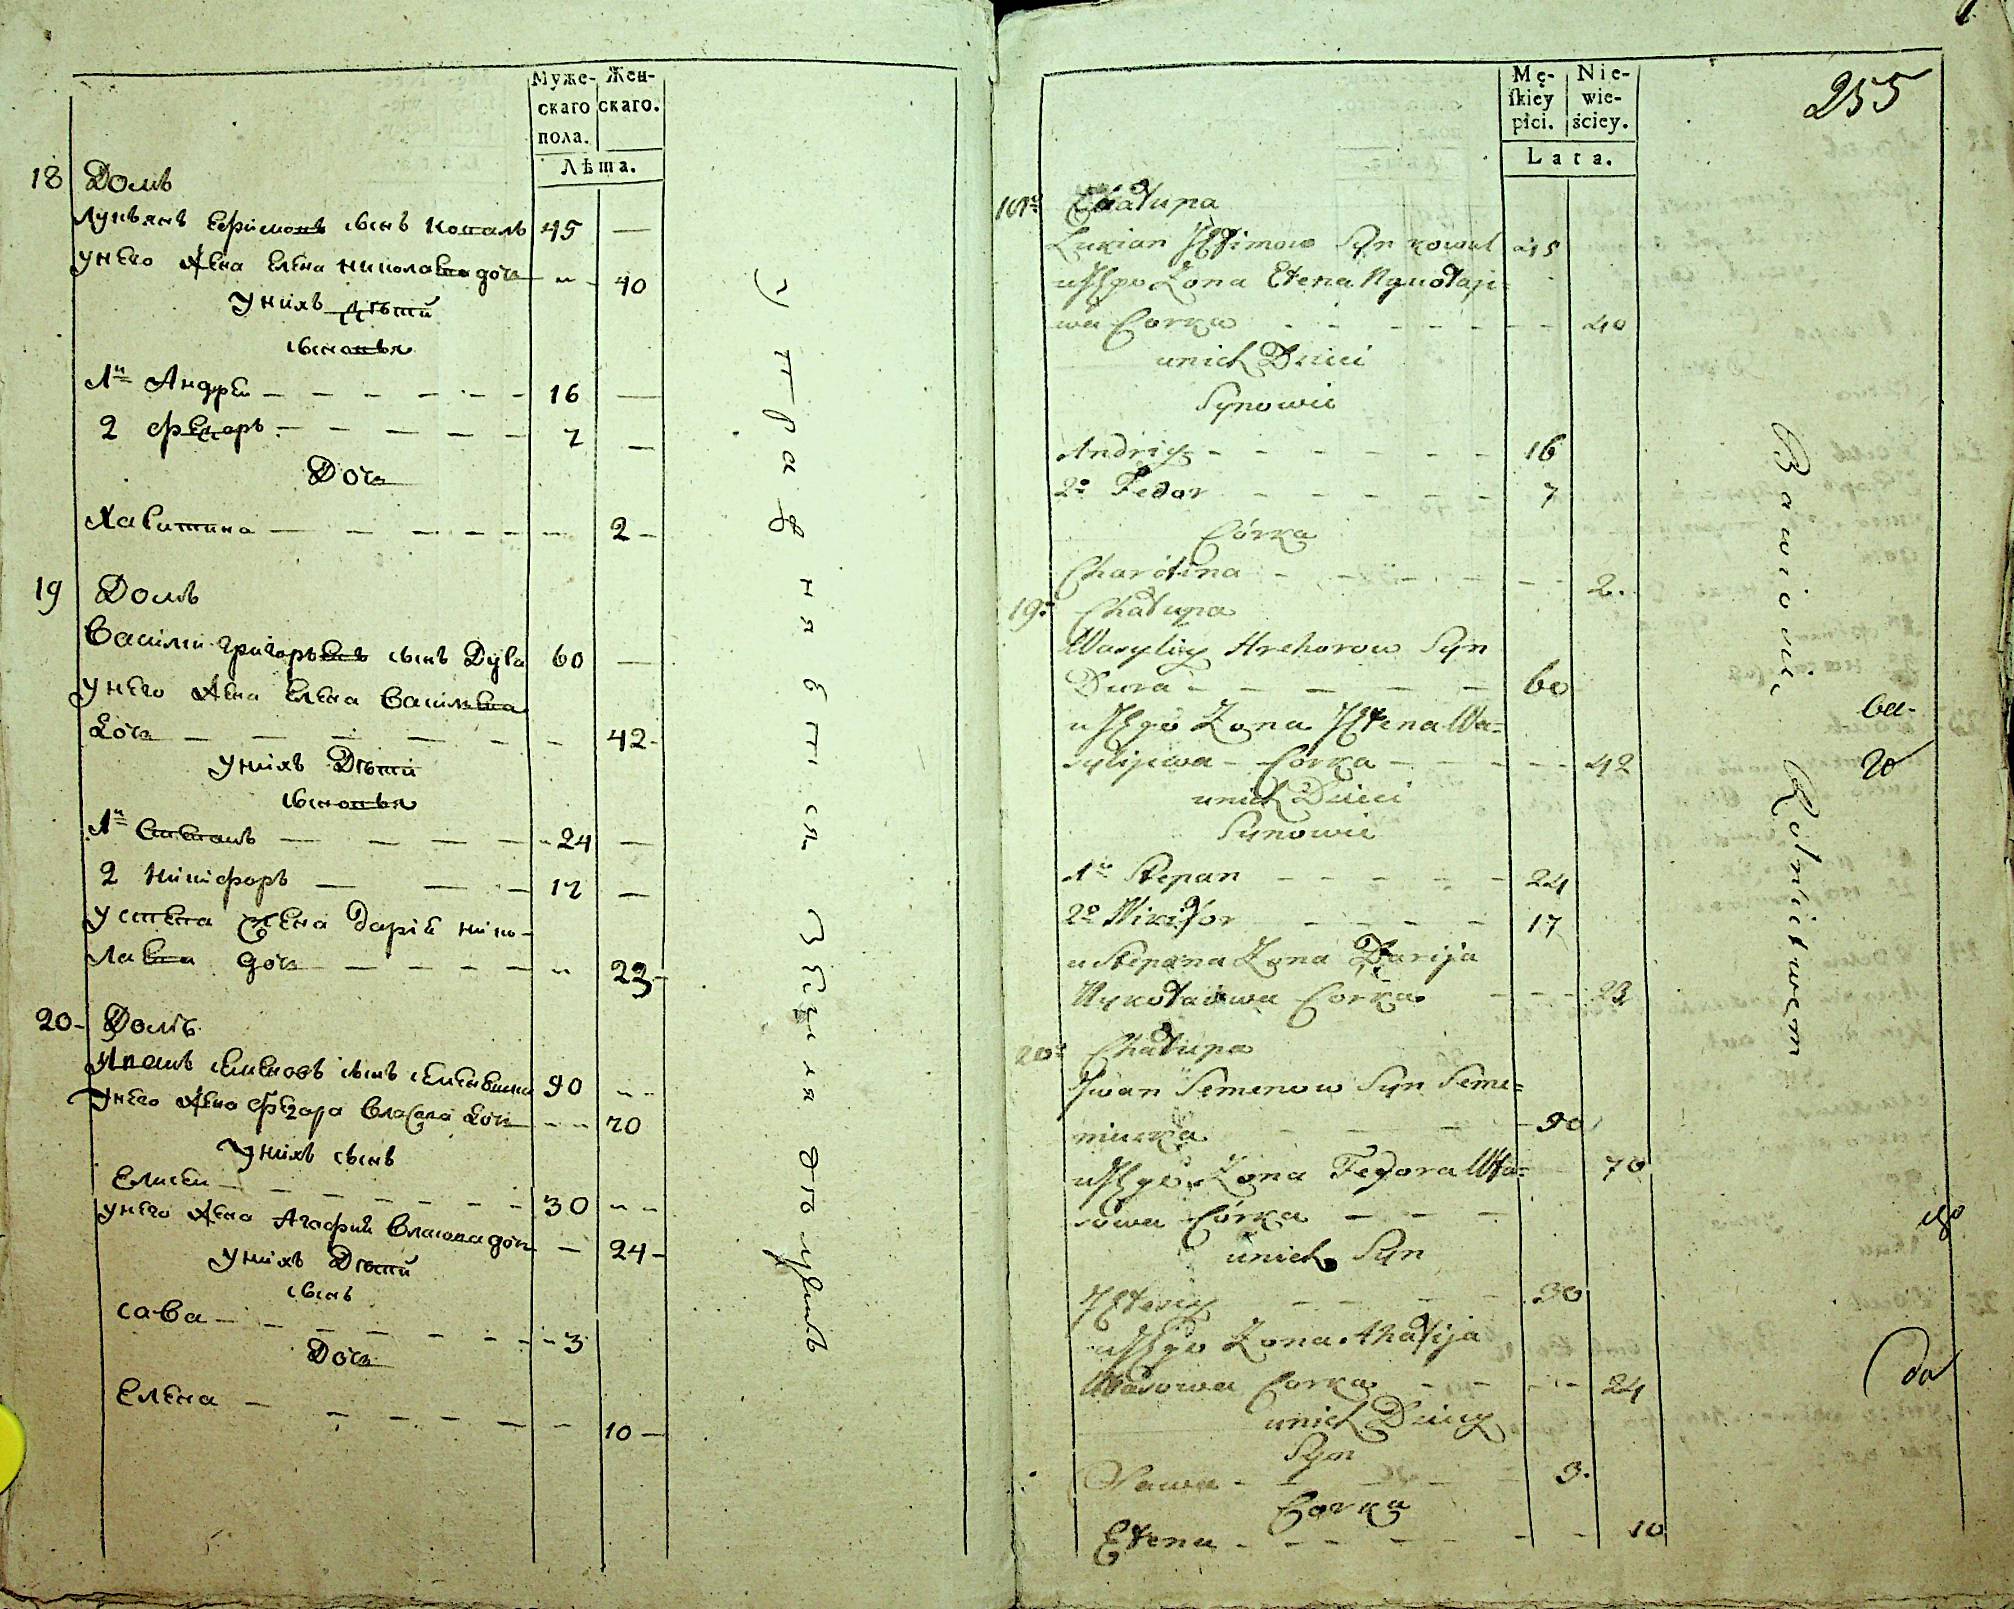 Муже- Жен-
скаго скаго.
пола.
Лѣта.
18 Домъ
Лукьянъ Ефимовъ сынъ Коваль 45 —
у него жена Елена Николаева дочь " 40
у нихъ дѣти
сыновья
1й Андрей — — — — — — 16 —
2 Федоръ — — — — — 7 —
Дочь
Харитина — — — — — — 2 —
19 Домъ
Василий Григорьевъ сынъ Дуга 60 —
у него жена Елена Васильева
дочь — — — — — — 42 -
у нихъ Дѣти
сыновья
1й Степанъ — — — — " 24 —
2 Никифоръ — — — 17 —
у степана жена Дарія Нико-
лаева дочь — — — — " 23 -
20 - Домъ
Иванъ Семеновъ сынъ Семенюкъ 90 " -
у него жена Федора Власова дочь - - 70
у нихъ сынъ
Елисей — — — — — — 30 " -
у него жена Агафия Власова дочь — 24 -
у нихъ Дѣти
сынъ
сава — — — — — — - " 3
Дочь
Елена — — — — — — 10 —
Упражняется Земля дѣлiемъ
Mę- Nie-
ſkiey wie-
płci. ściey.
Lata.
255
18o Chałupa
Łukian Jefimow Syn Kowal 45
u Jego Żona Ełena Nykołaje-
wa Corka - - - - - - - 40
u nich Dzieci
Synowie
Andriy - - - - - - 16
2o Fedor - - - - - 7
Córka
Charitina - - - - - - 2.
19o Chałupa
Wasyliy Hrehorow Syn
Duha - - - - - 60
u Jego Żona Jełena Wa=
sylijewa - Corka - - - - - 42
u nich Dzieci
Synowie
1o Stepan - - - - - 24
2o Nikifor - - - - 17
u Stepana Żona Darija
Nykołaiowa Corka - - - 23
20o Chałupa
Iwan Semenow Syn Seme=
niuka - - - - 90
u Jego Żona Fedora Wła= 70
sowa Córka — — —
u nich Syn
Jełisey - - - - 30
u Jego Żona Ahafija
Własowa Corka - - - - 24
u nich Dzieci
Syn
Sawa - - - - - 3.
Corka
Ełena - - - - - - - 10
Bawi sie, Rolnictwem
wa-
20
ego
da